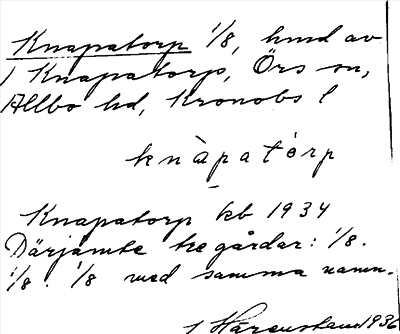 Knapatorp 1/8, hmd av
1 Knapatorps, Örs sn,
Allbo hd, Kronobs l
knàpatórp
Knapatorp kb 1934
Därjämte tre gårdar: 1/8.
1/8. 1/8 med samma namn.
1936